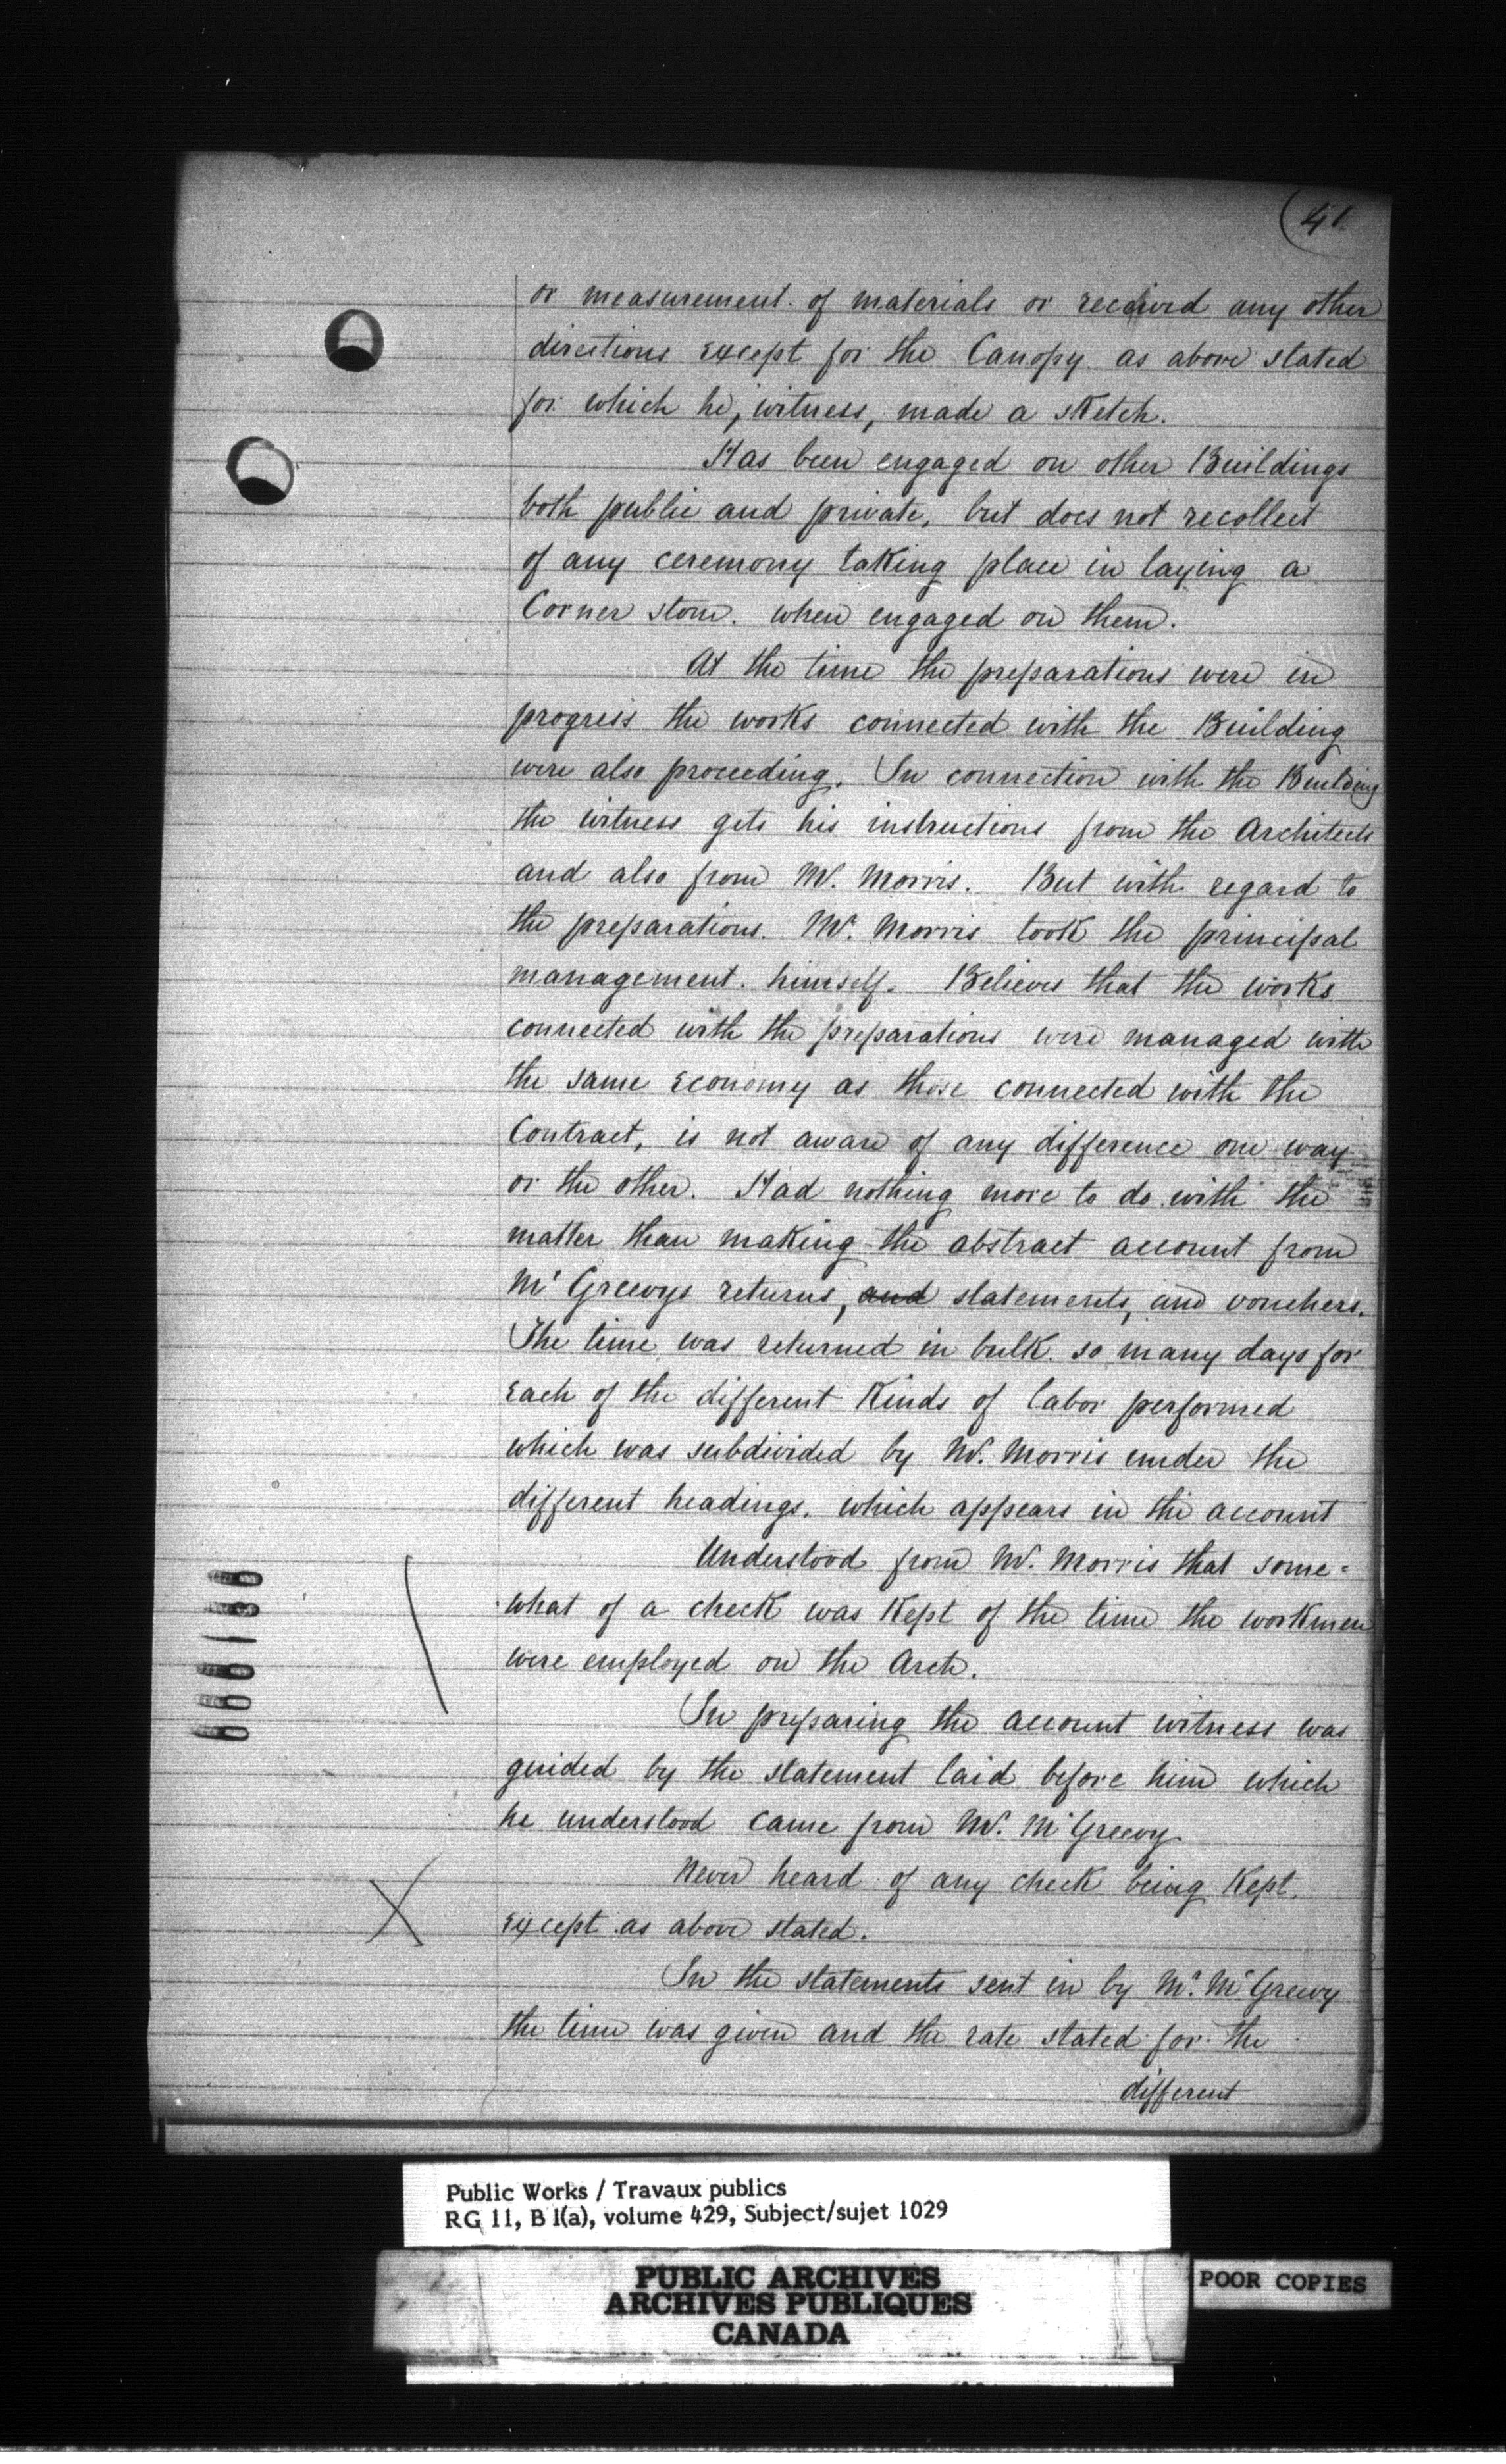 (41
or measurement. of materials or received any other
directions except for the Canopy. as above stated
for which he, witness, made a sketch.
Has been engaged on other Buildings
both public and private, but does not recollect
of any ceremony taking place in laying a
Corner stone. when engaged on them.
At the time the preparations were in
progress the works connected with the Building
were also proceeding. In connection with the Building
the witness gets his instructions from the Architects
and also from Mr. Morris. But with regard to
the preparations. Mr. Morris took the principal
management. himself. Believes that the works
connected with the preparations were managed with
the same economy as those connected with the
Contract, is not aware of any difference one way
or the other. Had nothing more to do with the
matter than making the abstract account from
McGreevys returns, and statements, and vouchers.
The time was returned in bulk. so many days for
each of the different Kinds of labor performed
which was subdivided by Mr. Morris under the
different headings. which appears in the account
Understood from Mr. Morris that some-
what of a check was Kept of the time the workmen
were employed on the Arch.
In preparing the account witness was
guided by the statement laid before him which
he understood came from Mr. McGreevy.
Never heard of any check being Kept.
except as above stated.
In the statements sent in by Mr. McGreevy
the time was given and the rate stated for the
different
Public Works / Travaux publics
RG 11, B 1(a), volume 429, Subject/sujet 1029
PUBLIC ARCHIVES
ARCHIVES PUBLIQUES
CANADA
POOR COPIES